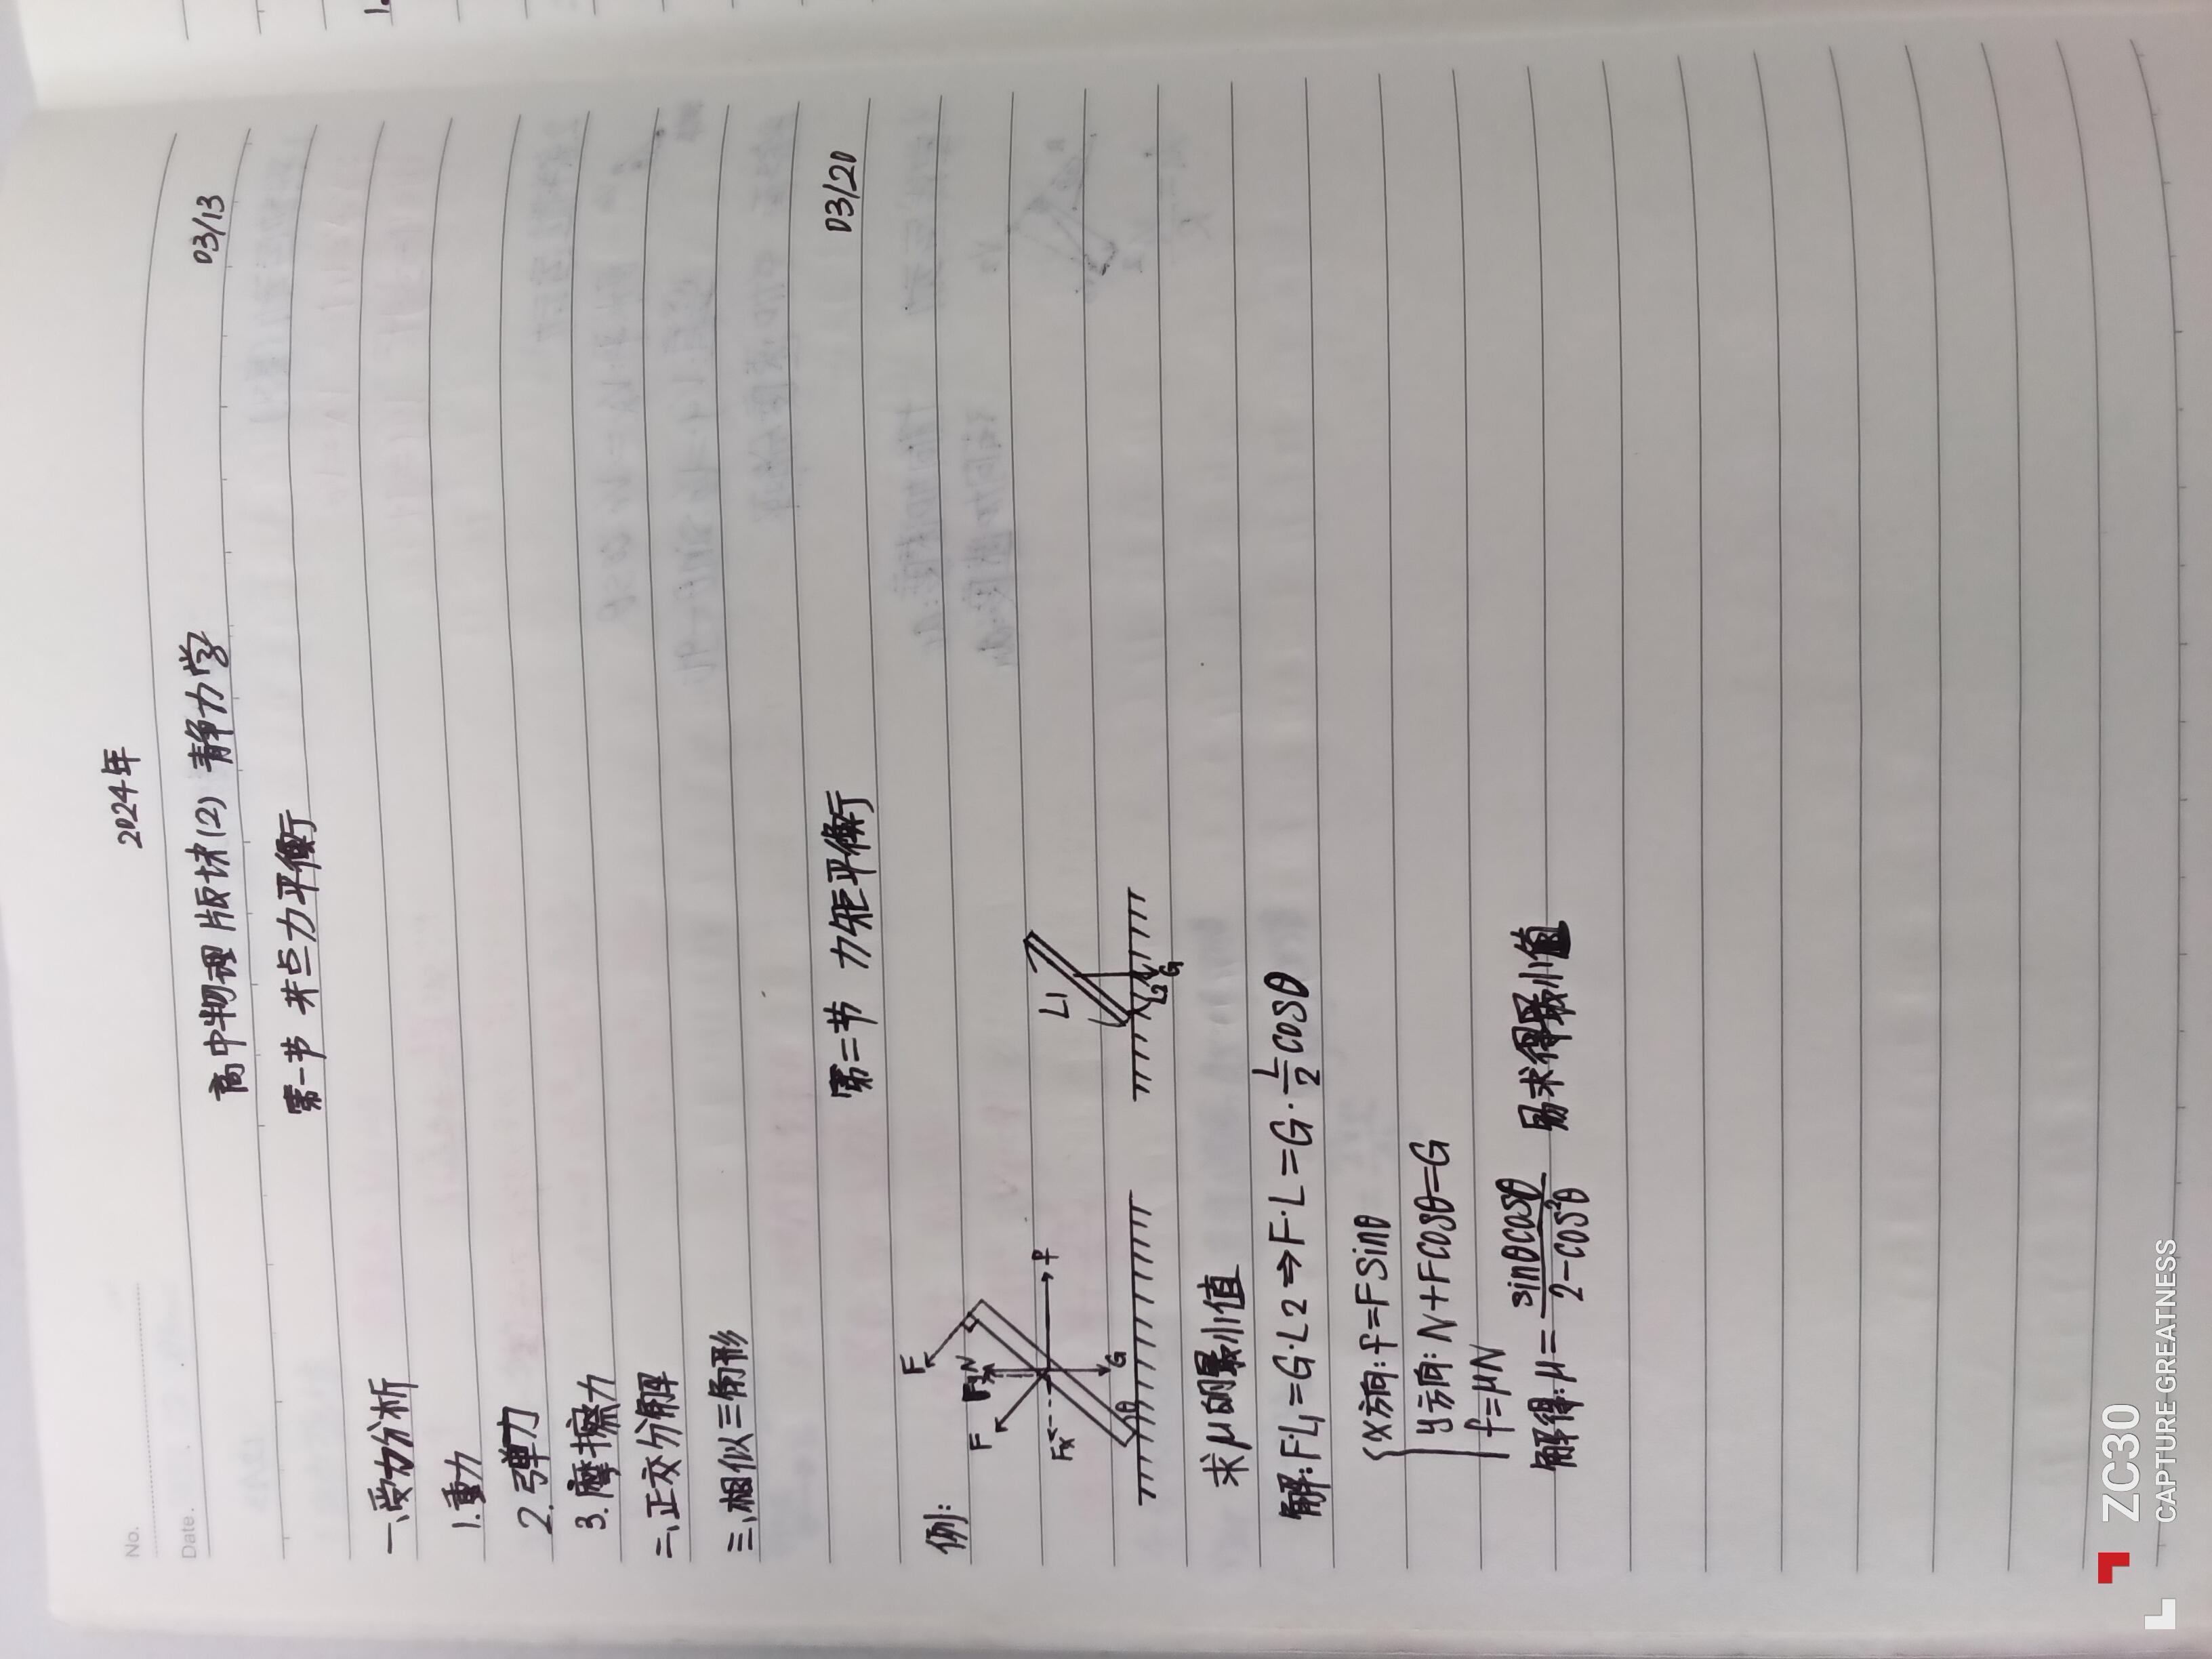 No.
Date.
2024年
高中物理版块(2) 静力学
03/13
第一节 共点力平衡
一、受力分析
1.重力
2.弹力
3.摩擦力
二、正交分解
三、相似三角形
第二节 力矩平衡
03/20
例:
F
F
Fy N
Fx
f
G
θ
L1
L2
G
求μ的最小值
解:F·L1=G·L2⇒F·L=G·L/2cosθ
x方向:f=Fsinθ
y方向:N+Fcosθ=G
f=μN
解得:μ=sinθcosθ/2-cos²θ 易求得最小值
ZC30
CAPTURE GREATNESS
1.